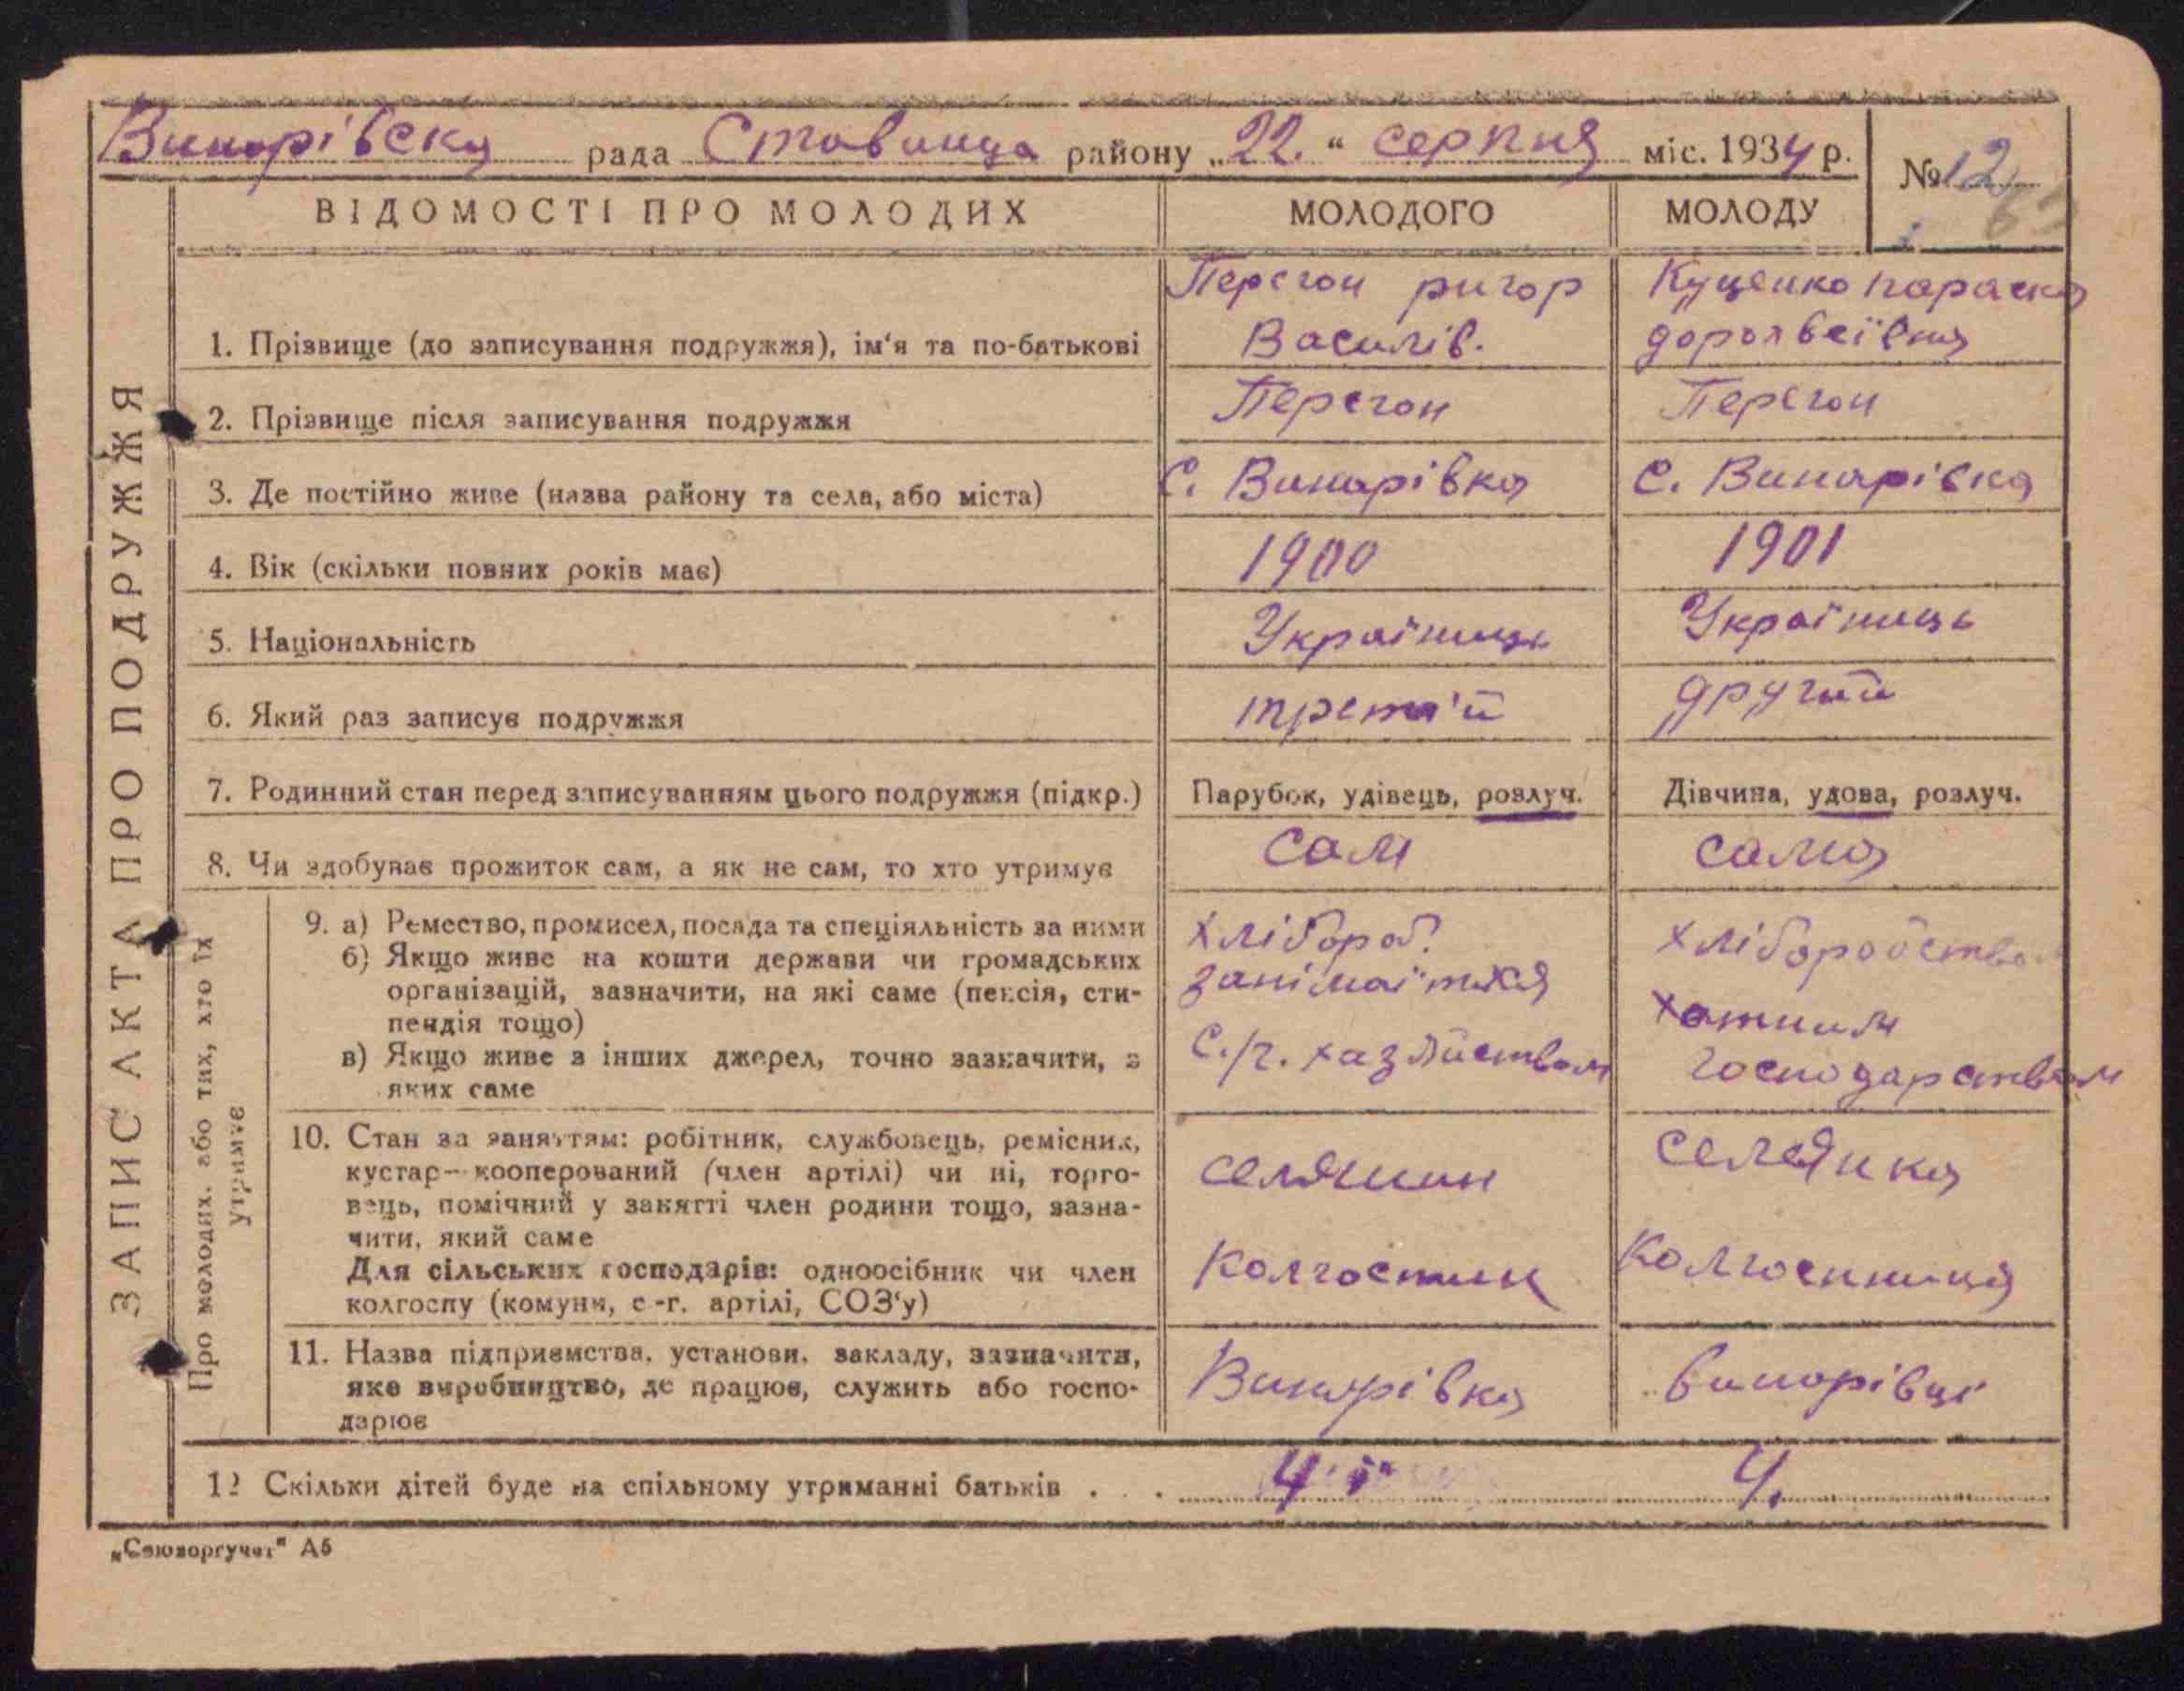 Винарівська рада Ставища району „22.“ серпня міс. 1934 р.
№ 12
ВІДОМОСТІ ПРО МОЛОДИХ МОЛОДОГО МОЛОДУ
ЗАПИС АКТА ПРО ПОДРУЖЖЯ
Перегон ригор Куценко параска
1. Прізвище (до записування подружжя), ім'я та по-батькові Василів.
2. Прізвище після записування подружжя Перегон Перегон
3. Де постійно живе (назва району та села, або міста) С. Винарівка С. Винарівка
4. Вік (скільки повних років має) 1900 1901
5. Національність Українець Українець
6. Який раз записує подружжя трет'й другий
7. Родинний стан перед записуванням цього подружжя (підкр.) Парубок, удівець, розлуч. Дівчина, удова, розлуч.
8. Чи здобуває прожиток сам, а як не сам, то хто утримує сам сама
Про молодих, або тих, хто їх
утримує
9. а) Ремество, промисел, посада та спеціяльність за ними хлібороб. хліборобство
б) Якщо живе на кошти держави чи громадських
організацій, зазначити, на які саме (пенсія, сти-
пендія тощо)
в) Якщо живе з інших джерел, точно зазначити, з
яких саме
занімаїться хатним
с./г. хазяйством господарством
10. Стан за заняттям: робітник, службовець, ремісник,
кустар—кооперований (член артілі) чи ні, торго-
вець, помічний у занятті член родини тощо, зазна-
чити, який саме
Для сільських господарів: одноосібник чи член
колгоспу (комуни, с.-г. артілі, СОЗ'у)
селянин селянка
Колгоспник Колгоспниця
11. Назва підприємства, установи, закладу, зазначити,
яке виробництво, де працює, служить або госпо-
дарює
Винарівка винарівці
12 Скільки дітей буде на спільному утриманні батьків . . . 4 4.
„Союзоргучет“ А5